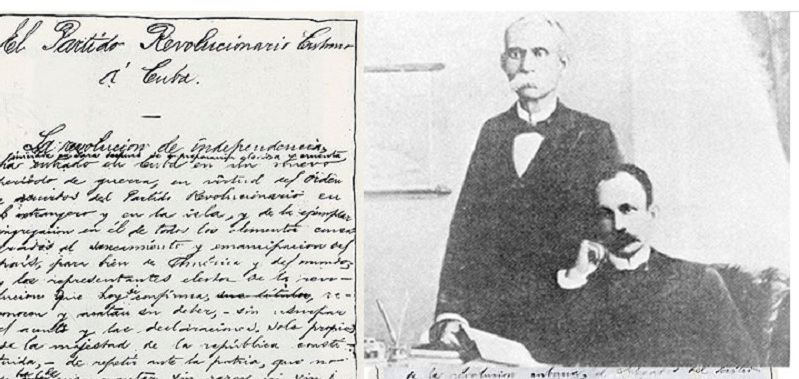 El Partido Revolucionario Cubano
á Cuba.
La revolucion de independencia,
iniciada en Yara despues de preparacion gloriosa y cruenta
ha entrado en Cuba en un nuevo
periodo de guerra, en virtud del orden
y acuerdos del Partido Revolucionario en
el extrangero y en la isla, y de la ejemplar
congregacion en él de todos los elementos consa
grados al saneamiento y emancipacion del
país, para bien de América y del mundo;
y los representantes electos de la revo-
lucion que hoy se confirma, reco
nocen y acatan su deber, - sin usurpar
el acento y las declaraciones solo propias
de la majestad de la república consti-
tuida, - de repetir ante la patria, que no
de la revolucion cubana,